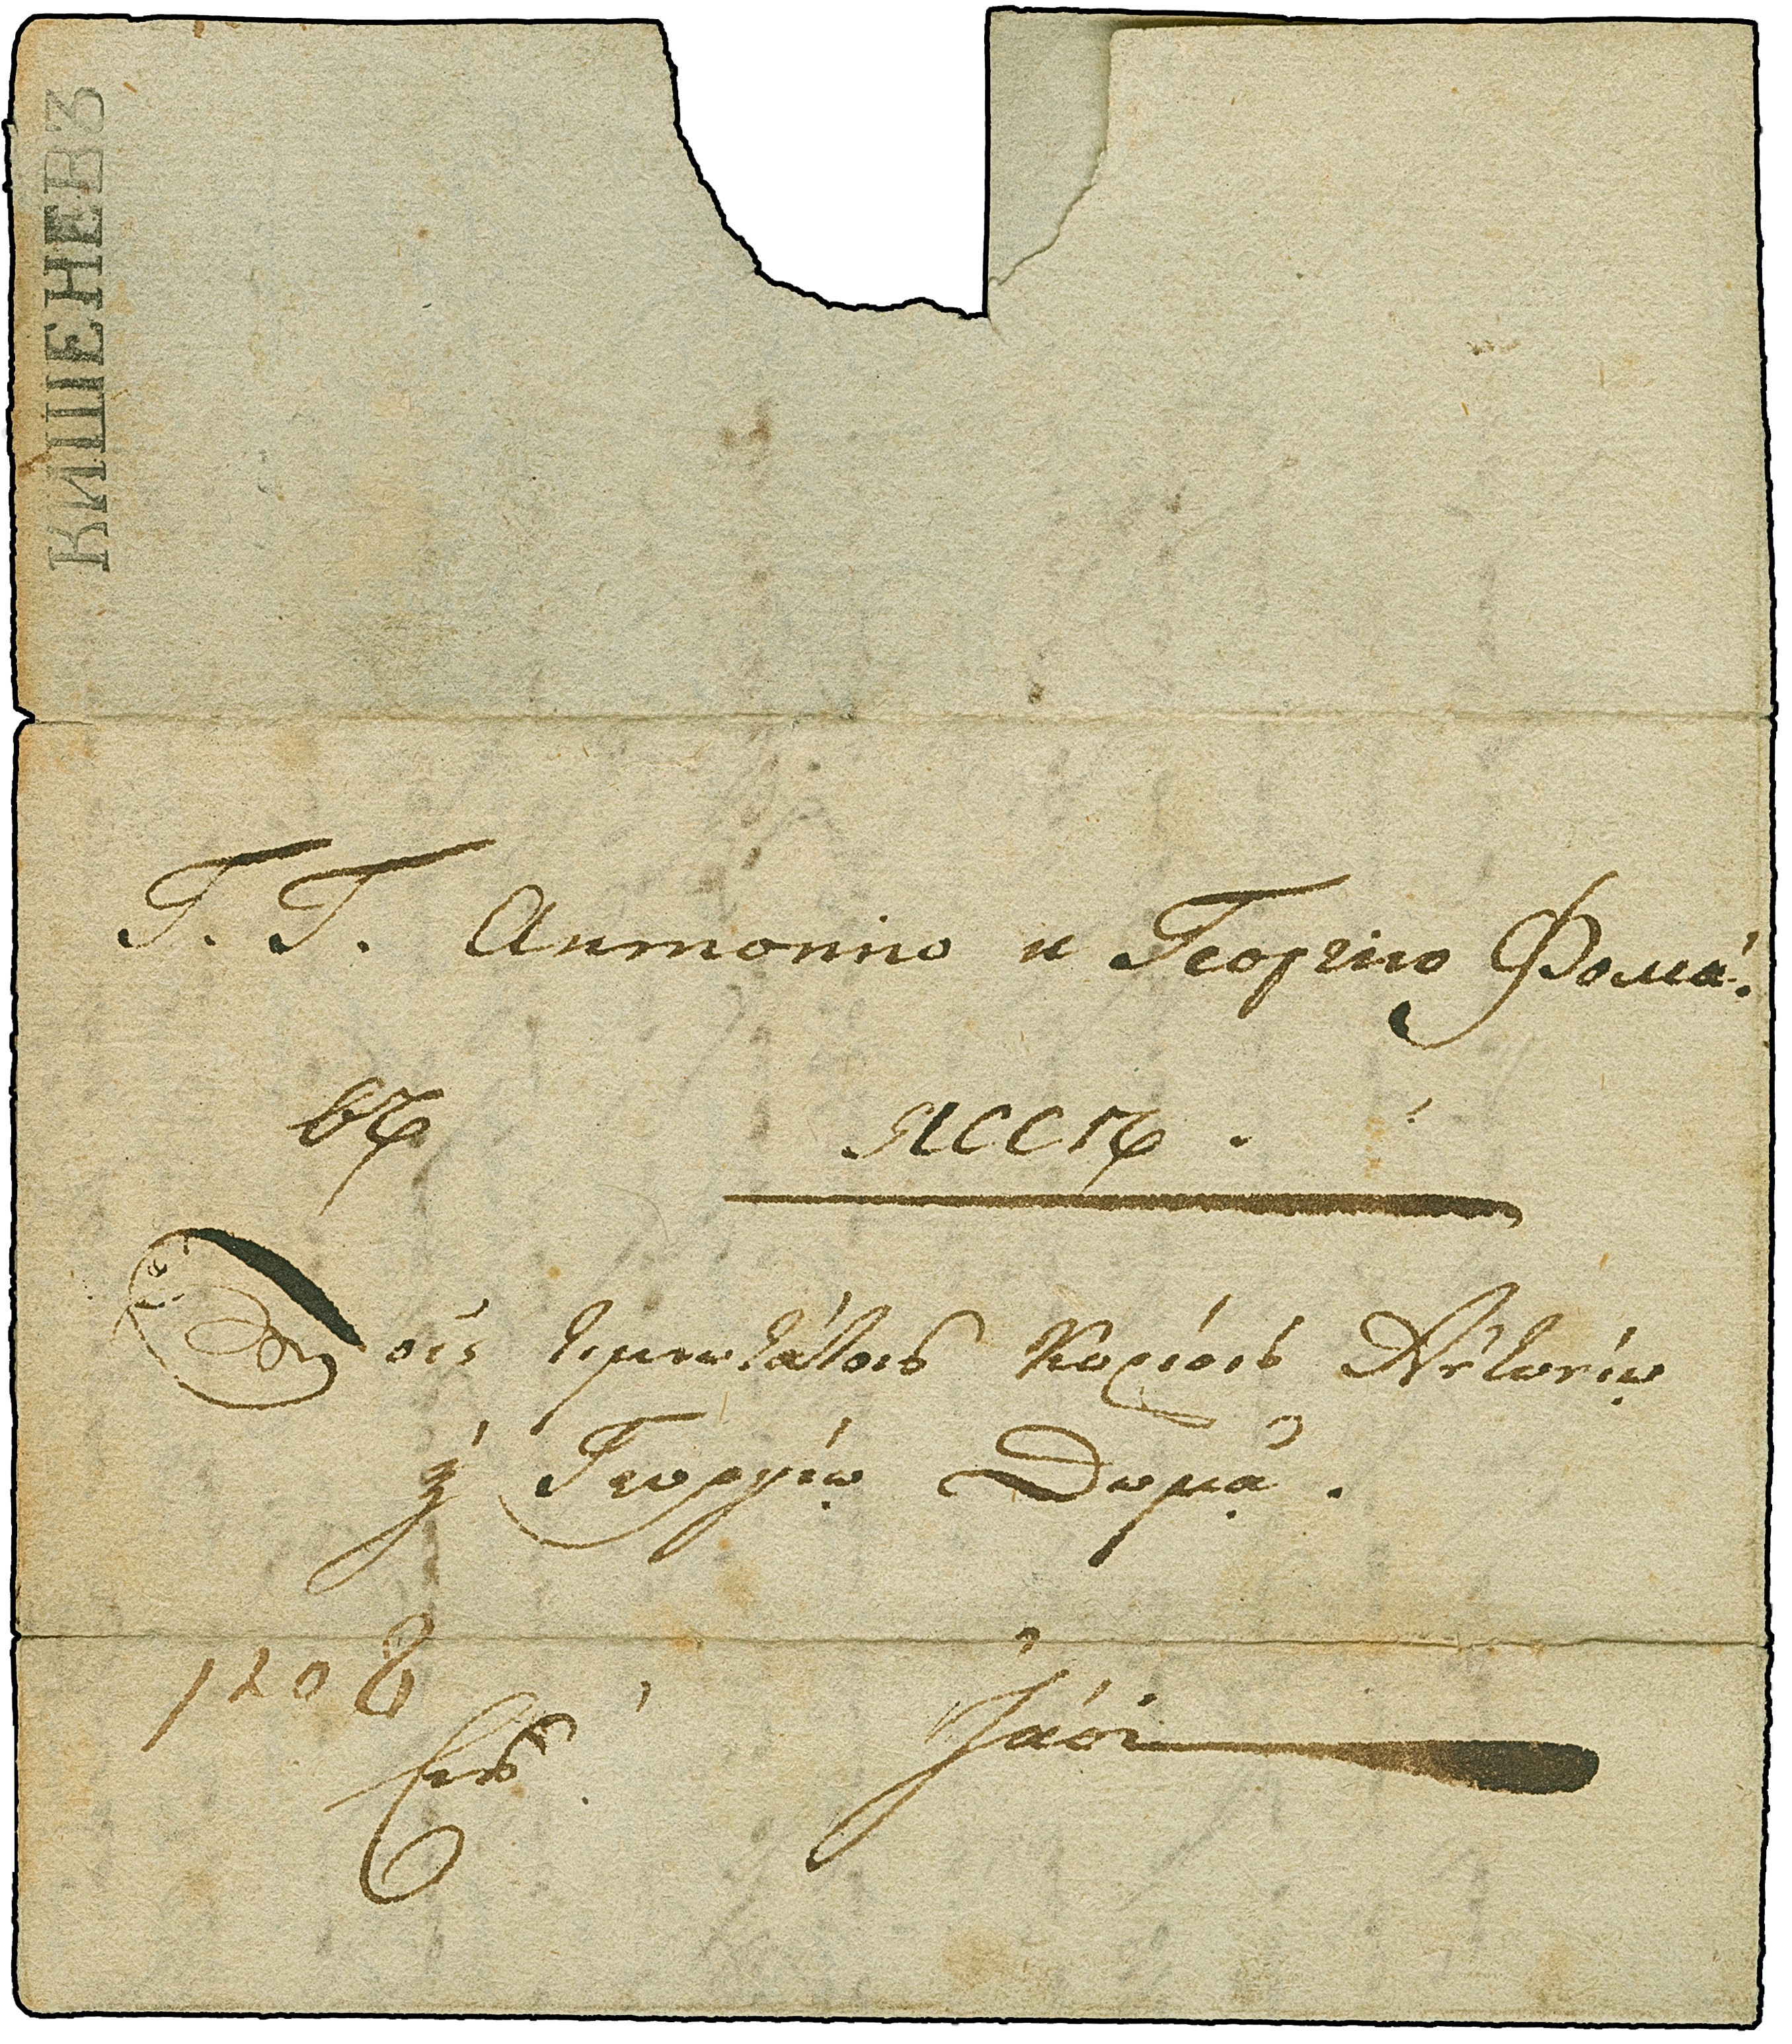 КИШЕНЕВЪ
Г. Г. Антонию и Георгию Фома.
въ Яссъ.
Τοῖς τιμιωτάτοις Κυρίοις Ἀντωνίῳ
ϗ Γεωργίῳ Θωμᾷ.
1208
Εἰς Ἰάσι